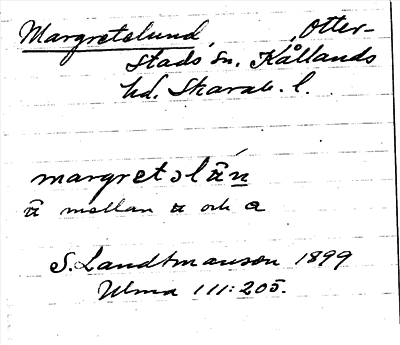 Margretelund, Otter-
stads sn. Kållands
hd. Skarab. l.
margretəlān
ā mellan a och a
S. Landtmanson 1899
Ulma 111:205.